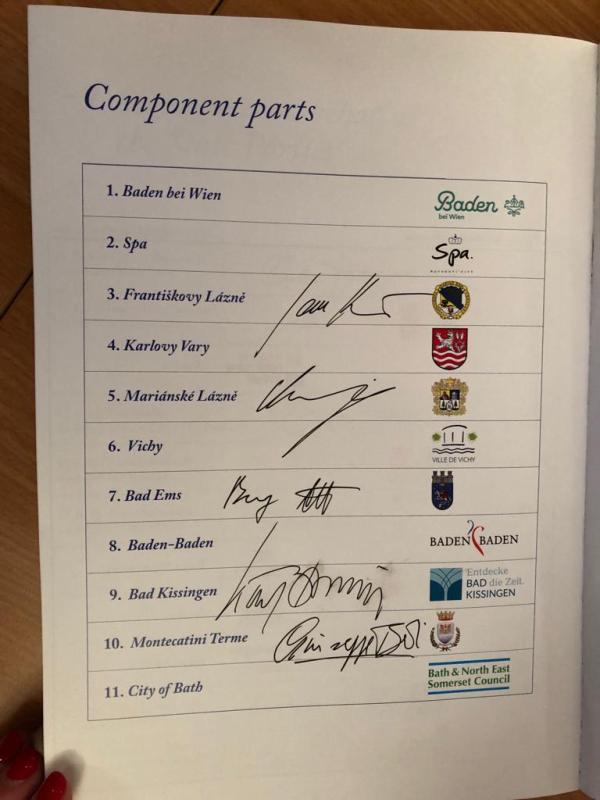 Component parts
1. Baden bei Wien
Baden
bei Wien
2. Spa
Spa.
3. Františkovy Lázně
4. Karlovy Vary
5. Mariánské Lázně
6. Vichy
VILLE DE VICHY
7. Bad Ems
8. Baden-Baden
BADEN BADEN
9. Bad Kissingen
Entdecke
BAD die Zeit.
KISSINGEN
10. Montecatini Terme
11. City of Bath
Bath & North East
Somerset Council